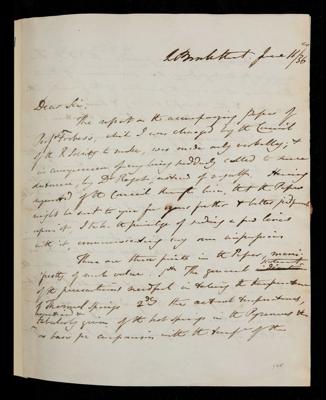 2 Brook Street June 11/36
Dear Sir,
The report on the accompanying Paper of
Prof Forbess, which I was charged by the Council
of the R. Society to make, was made only verbally; &
in consequence of my being suddenly called to some
distance, by Dr Roget, instead of myself. Having
requested of the Council through him, that the Paper
might be sent to you for your further & better judgment
upon it. I take the privilege of sending a few lines
with it, communicating my own impression
There are three points in the Paper,
of much value. 1st The general
of the precautions needful in taking the temperature
of Thermal Springs 2dly the actual temperatures,
tabularly given of the hot springs in the Pyrenees &c
as base for comparison with the temps of the